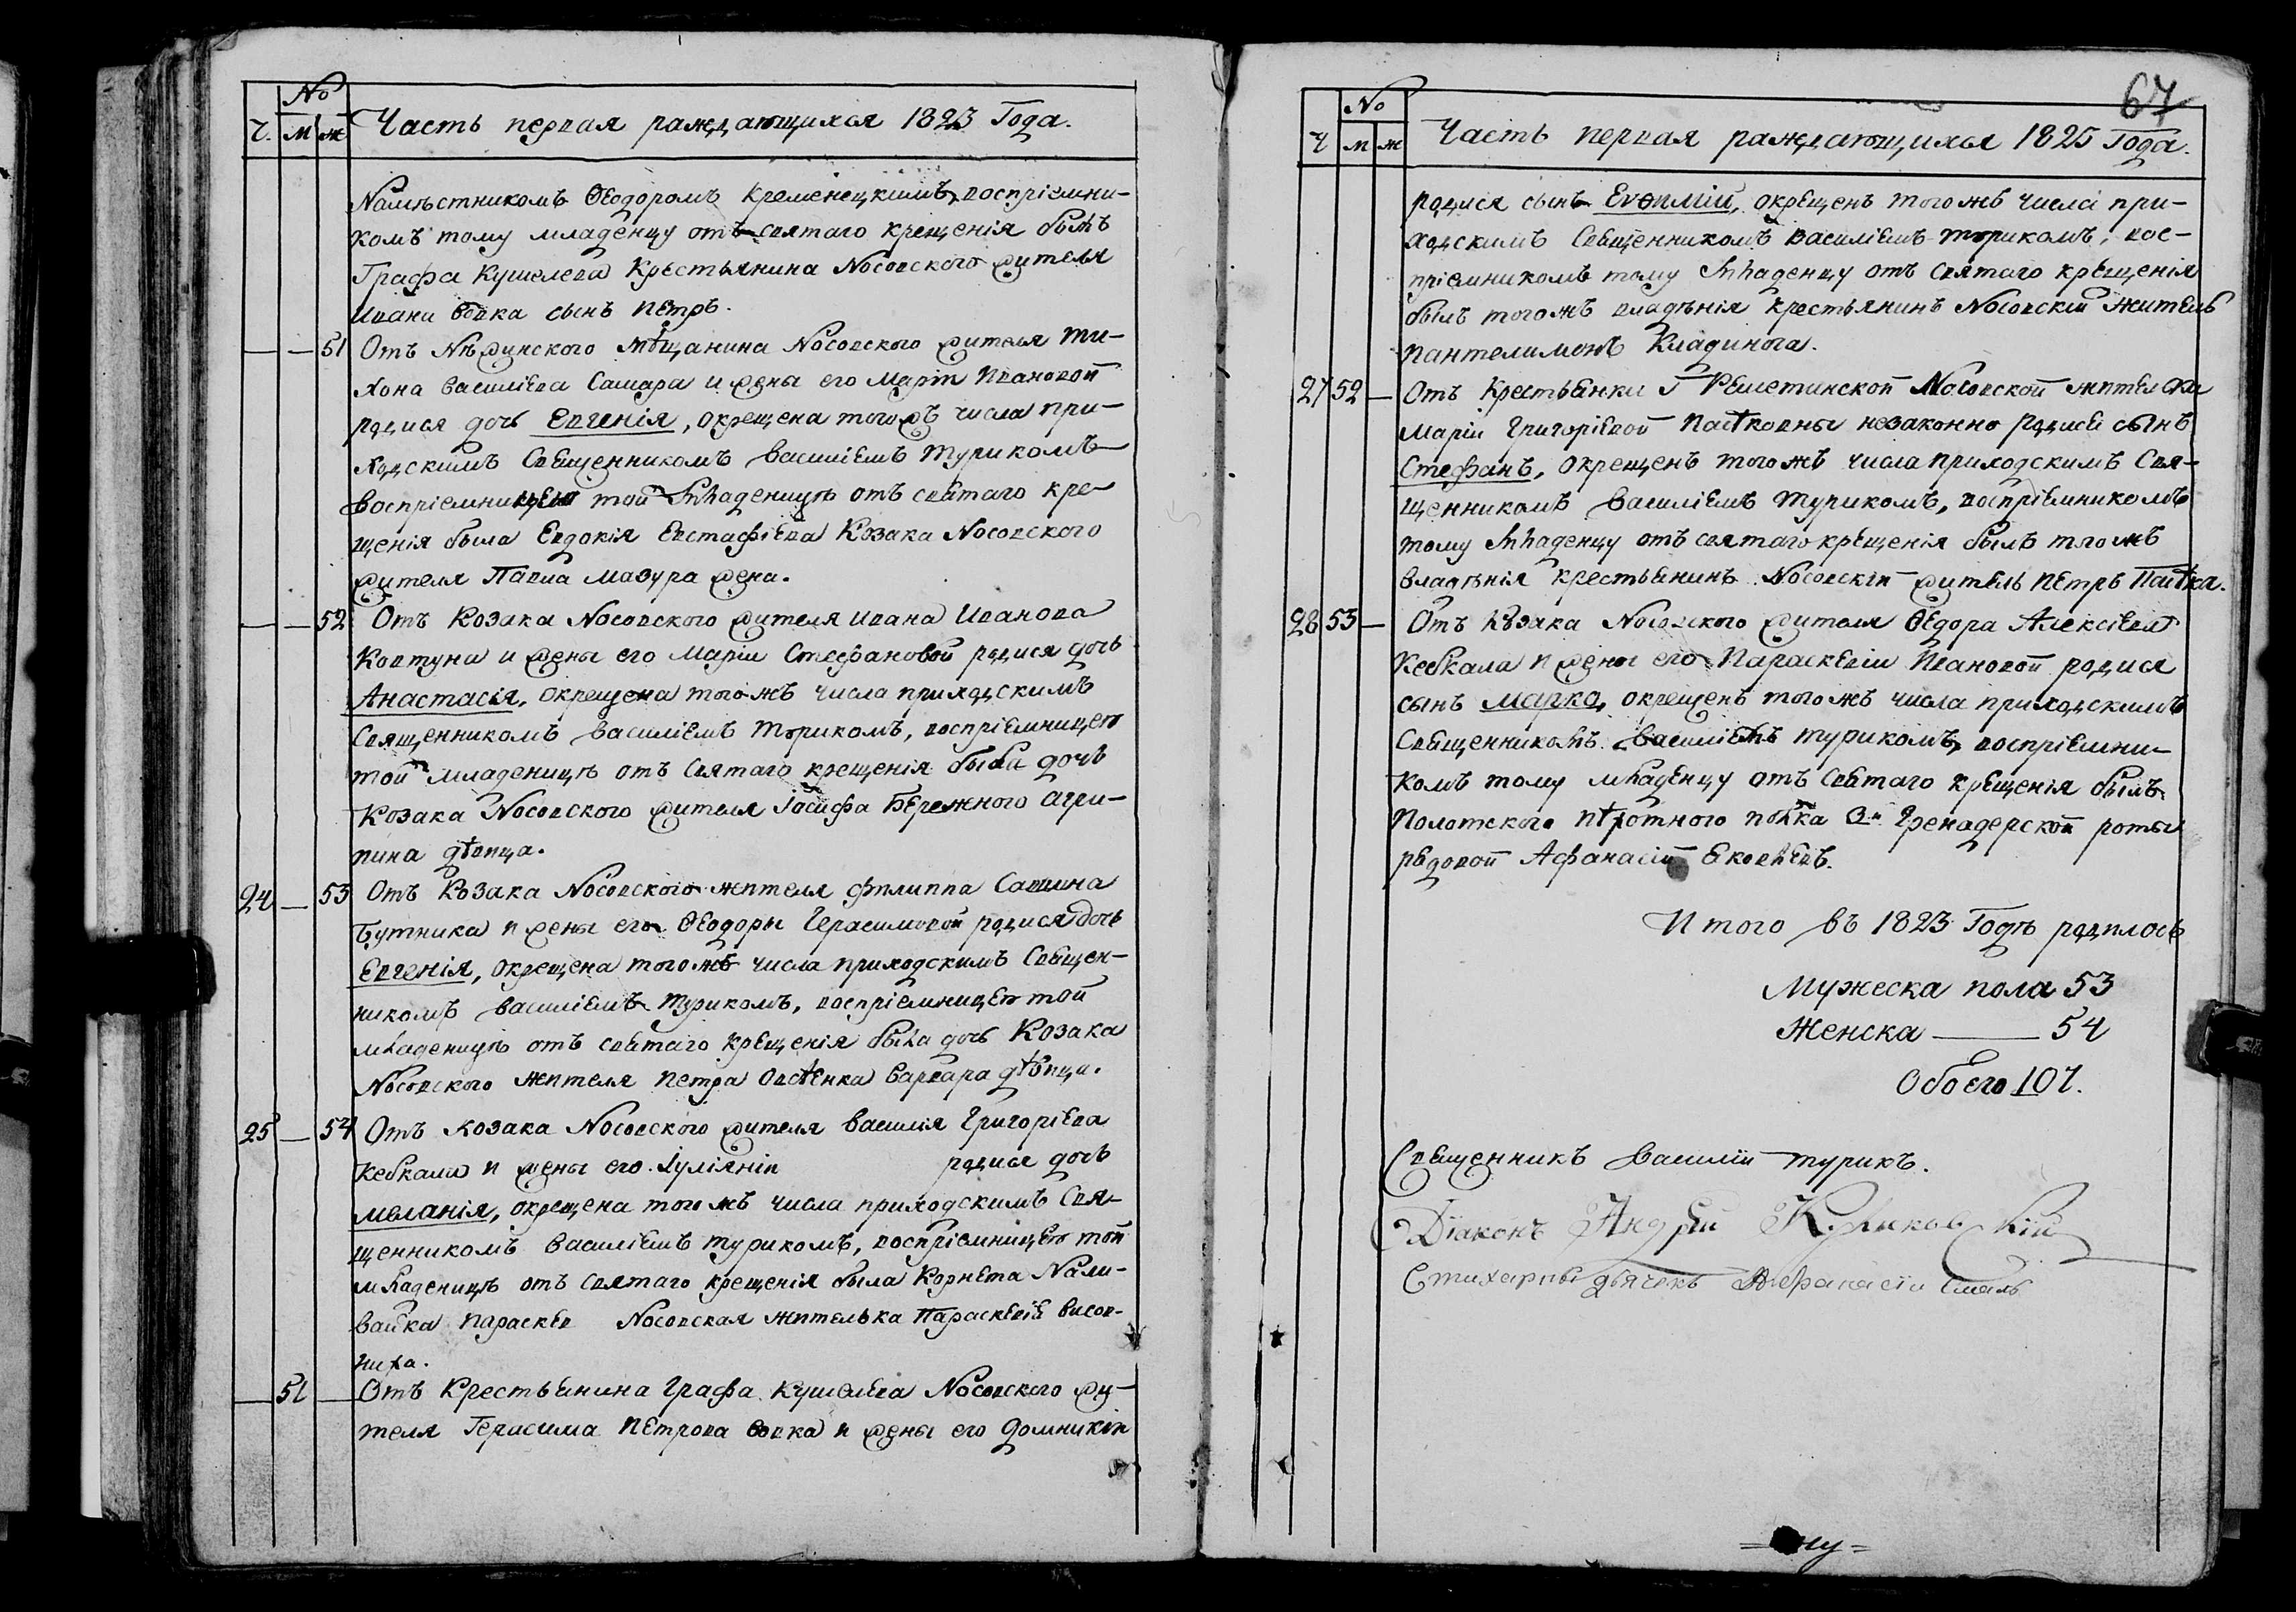 №
Ч. м ж Часть первая раждающихся 1823 Года.
Намѣстникомъ Ѳеодоромъ Кременецкимъ, воспріемни-
комъ тому младенцу отъ святаго крещенія былъ
Графа Кушелева Крестьянина Носовского жителя
Ивана Вовка сынъ Петръ.
— — 51 Отъ Нѣжинского мѣщанина Носовского жителя Ти-
хона Василіева Самара и жены его Маріи Ивановой
родися дочь Евгенія, окрещена того жъ числа при-
ходскимъ Священникомъ Василіемъ Турикомъ
воспріемницею той младеницѣ отъ святаго кре-
щенія была Евдокія Евстафіева Козака Носовского
жителя Павла Мазура жена.
— — 52 Отъ Козака Носовского жителя Ивана Иванова
Ковтуна и жены его Маріи Стефановой родися дочь
Анастасія, окрещена того жъ числа приходскимъ
Священникомъ Василіемъ Туриком, воспріемницею
той младеницѣ отъ Святаго крещенія была дочь
Козака Носовского жителя Іосифа Бережного Агри-
пина дѣвица.
24 — 53 Отъ Козака Носовского жителя Филиппа Саввина
Бутника и жены его Ѳеодоры Герасимовой родися дочь
Евгенія, окрещена того жъ числа приходскимъ Священ-
никомъ Василіемъ Турикомъ, воспріемницею той
младеницѣ отъ святаго крещенія была дочь Козака
Носовского жителя Петра Овсѣенка Варвара дѣвица.
25 — 54 Отъ Козака Носовского жителя Василія Григоріева
Кебкала и жены его Іуліяніи родися дочь
Меланія, окрещена того жъ числа приходскимъ Свя-
щенникомъ Василіемъ Турикомъ, воспріемницею той
младеницѣ отъ святаго крещенія была Корнета Нали-
вайка Параскев Носовская жителька Параскевія Висоц-
— 51 — Отъ Крестьянина Графа Кушелева Носовского жи-
теля Герасима Петрова Вовка и жены его Домникіи
67
№
Ч м ж Часть первая раждающихся 1823 Года.
родися сынъ Евѳимій, окрещенъ того жъ числа при-
ходскимъ Священникомъ Василіемъ Турикомъ, вос-
пріемникомъ тому младенцу отъ святаго крещенія
былъ того жъ владѣнія крестьянинъ Носовскій житель
Пантелимонъ Кладинога.
27 52 — Отъ Крестьянки Г Решетинской Носовской жителки
Маріи Григоріевой Паѣковны незаконно родися сынъ
Стефанъ, окрещенъ того жъ числа приходскимъ Свя-
щенникомъ Василіемъ Турикомъ, воспріемникомъ
тому младенцу отъ святаго крещенія былъ того жъ
владѣнія крестьянинъ Носовскій житель Петръ Паѣка.
28 53 — Отъ Козака Носовского жителя Ѳедора Алексіева
Кебкала и жены его Параскевіи Ивановой родися
сынъ Марко, окрещенъ того жъ числа приходскимъ
Священникомъ Василіемъ Турикомъ, воспріемни-
комъ тому младенцу отъ Святаго крещенія былъ
Полотского пѣхотного полка 3й Гренадерской роты
рядовой Афанасій Яковлевъ.
Итого въ 1823 Годѣ родилось
Мужеска пола 53
Женска — 54
Обоего 107.
Священникъ Василій Турикъ.
Діаконъ Андрей Куликовскій
Стихарный дьячекъ Афанасій